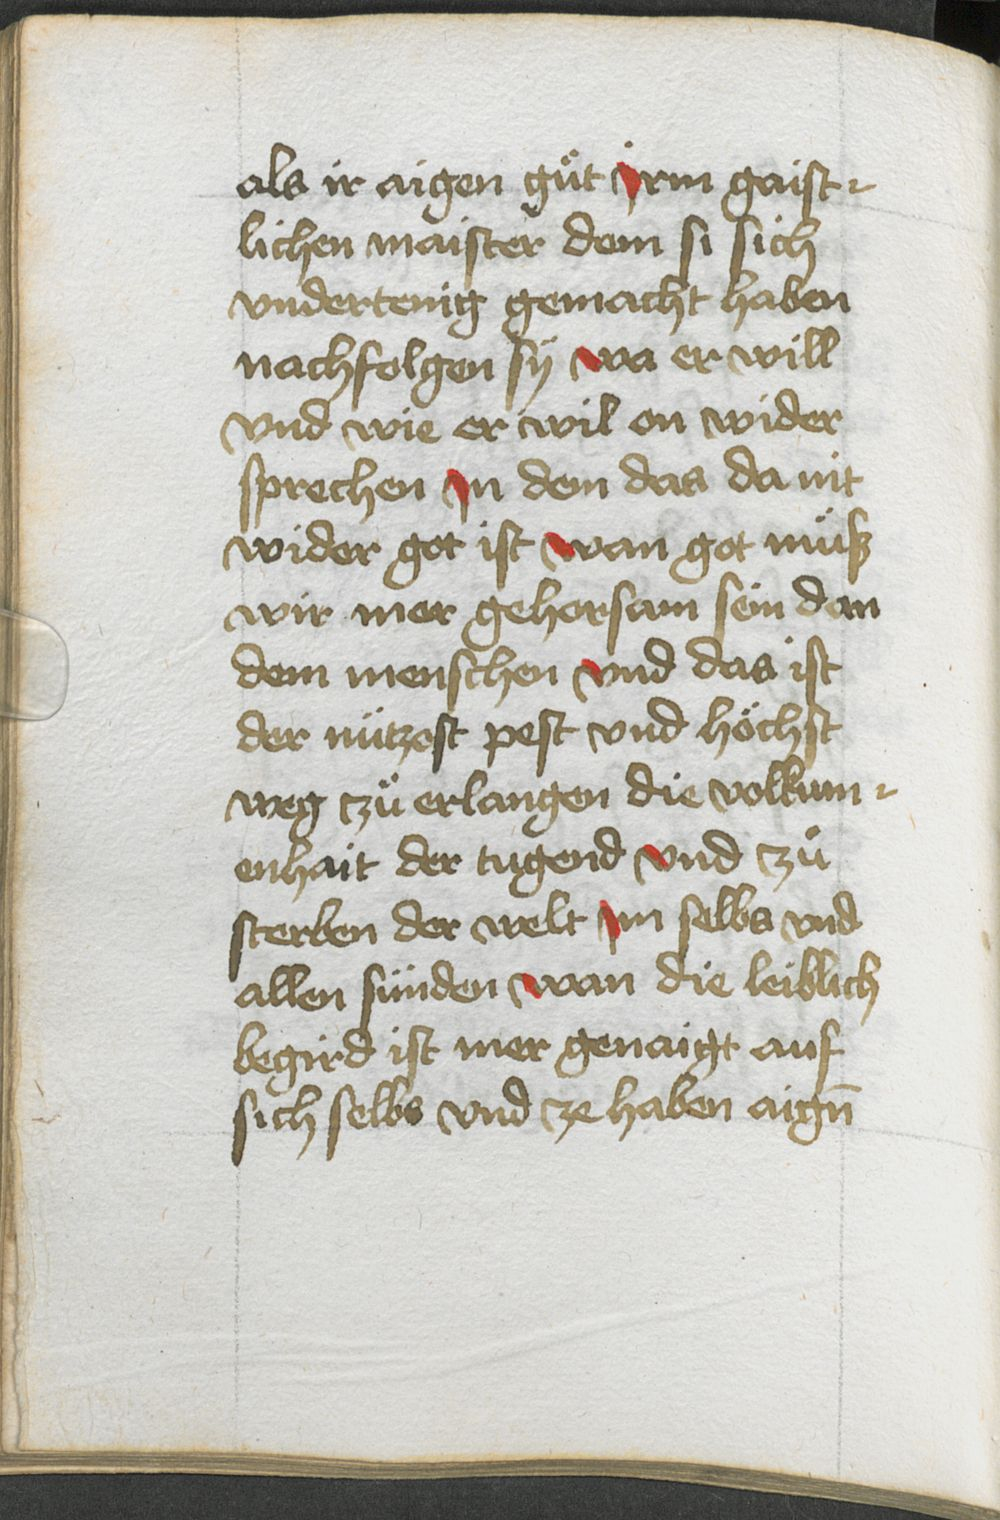 als ir aigen gůt irm gaist-
lichen maister dem si sich
vndertenig gemacht haben
nachfolgen sÿ wa er will
vnd wie er wil on wider
sprechen In dem das da nit
wider got ist wan got müsß
wir mer gehorsam sein dan
dem menschen vnd das ist
der nützest pest vnd höchst
weg zů erlangen die volkum-
enhait der tugend vnd zů
sterben der welt im selbs vnd
allen sünden wan die leiblich
begird ist mer genaigt auf
sich selbs vnd ze haben aign̄